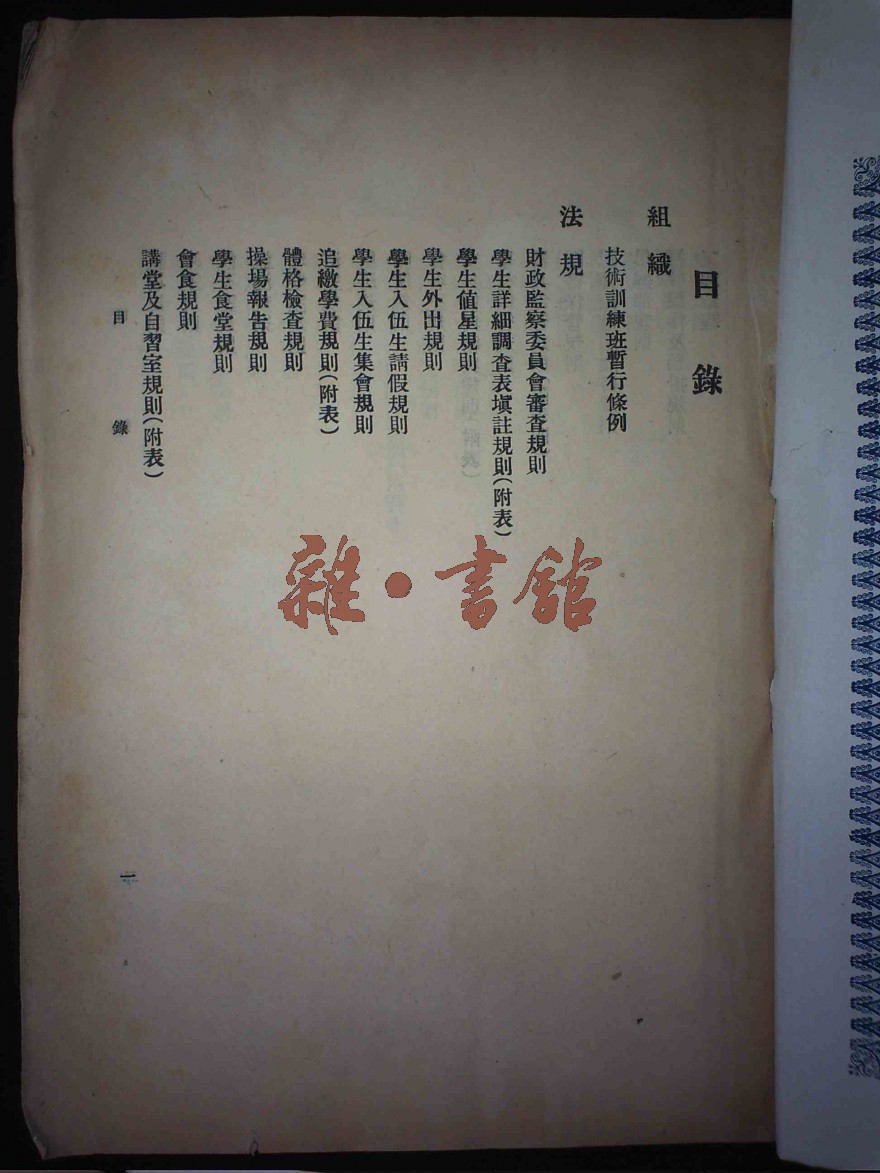 目錄
組織
技術訓練班暫行條例
法規
財政監察委員會審查規則
學生詳細調查表塡註規則(附表)
學生値星規則
學生外出規則
學生入伍生請假規則
學生入伍生集會規則
追繳學費規則(附表)
體格檢查規則
操場報告規則
學生食堂規則
會食規則
講堂及自習室規則(附表)
目錄
一
雜·書館